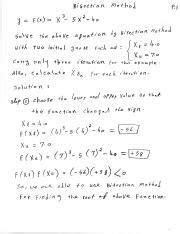 Bisection Method
y = F(x) = x³- 5x²- 40
Solve the above equation by Bisection Method
with two initial guess such as : { Xℓ = 4.0
Xu = 7.0
Carry only three iteration for this example.
Also, calculate % Ea for each iteration.
Solution :
Step ① choose the lower and upper value so that
the function changed the sign.
Xℓ = 4.0
F(Xℓ) = (4)³- 5(4)²- 40 = -56
Xu = 7.0
F(Xu) = (7)³- 5(7)²- 40 = +58
F(Xℓ) F(Xu) = (-56)(+58) < 0
So, we are able to use Bisection Method
For finding the root of above Function.